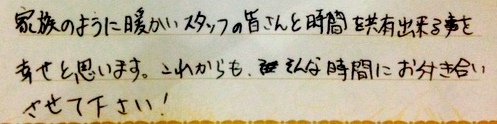 家族のように暖かいスタッフの皆さんと時間を共有出来る事を
幸せと思います。これからも、そんな時間にお付き合い
させて下さい!